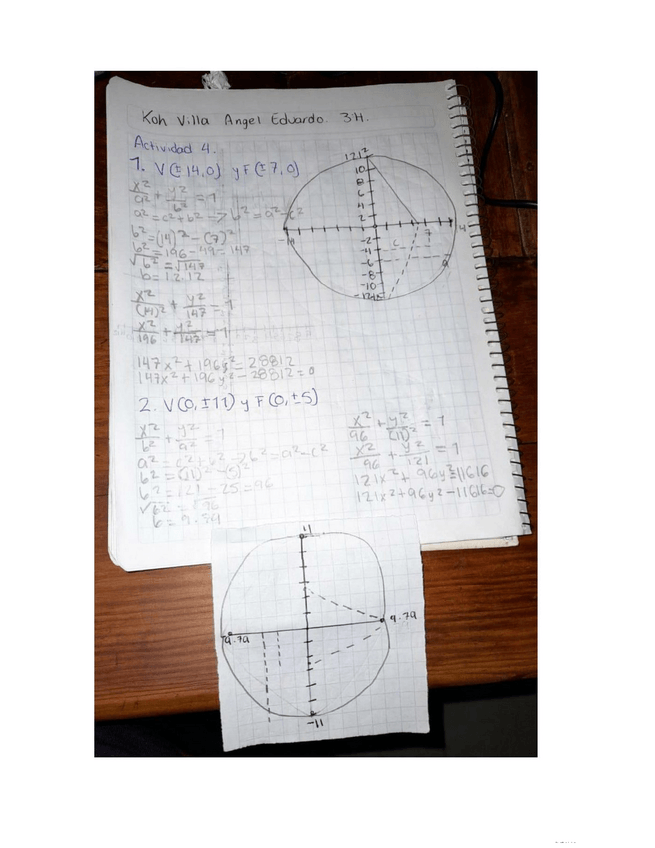 Koh Villa Angel Eduardo. 3H.
Actividad 4.
1. V(±14,0) y F(±7,0)
x²/a² + y²/b² = 1
a² = c² + b² -> b² = a² - c²
b² = (14)² - (7)²
b² = 196 - 49 = 147
√b² = √147
b = 12.12
x²/(14)² + y²/147 = 1
x²/196 + y²/147 = 1
147x² + 196y² = 28812
147x² + 196y² - 28812 = 0
1212
10
8
6
4
2
7
-2
c
-4
-6
a
-8
-10
2. V(0,±11) y F(0,±5)
x²/b² + y²/a² = 1
a² = c² + b² -> b² = a² - c²
b² = (11)² - (5)²
b² = 121 - 25 = 96
√b² = √96
x²/96 + y²/(11)² = 1
x²/96 + y²/121 = 1
121x² + 96y² = 11616
121x² + 96y² - 11616 = 0
11
9.79
9.79
-11